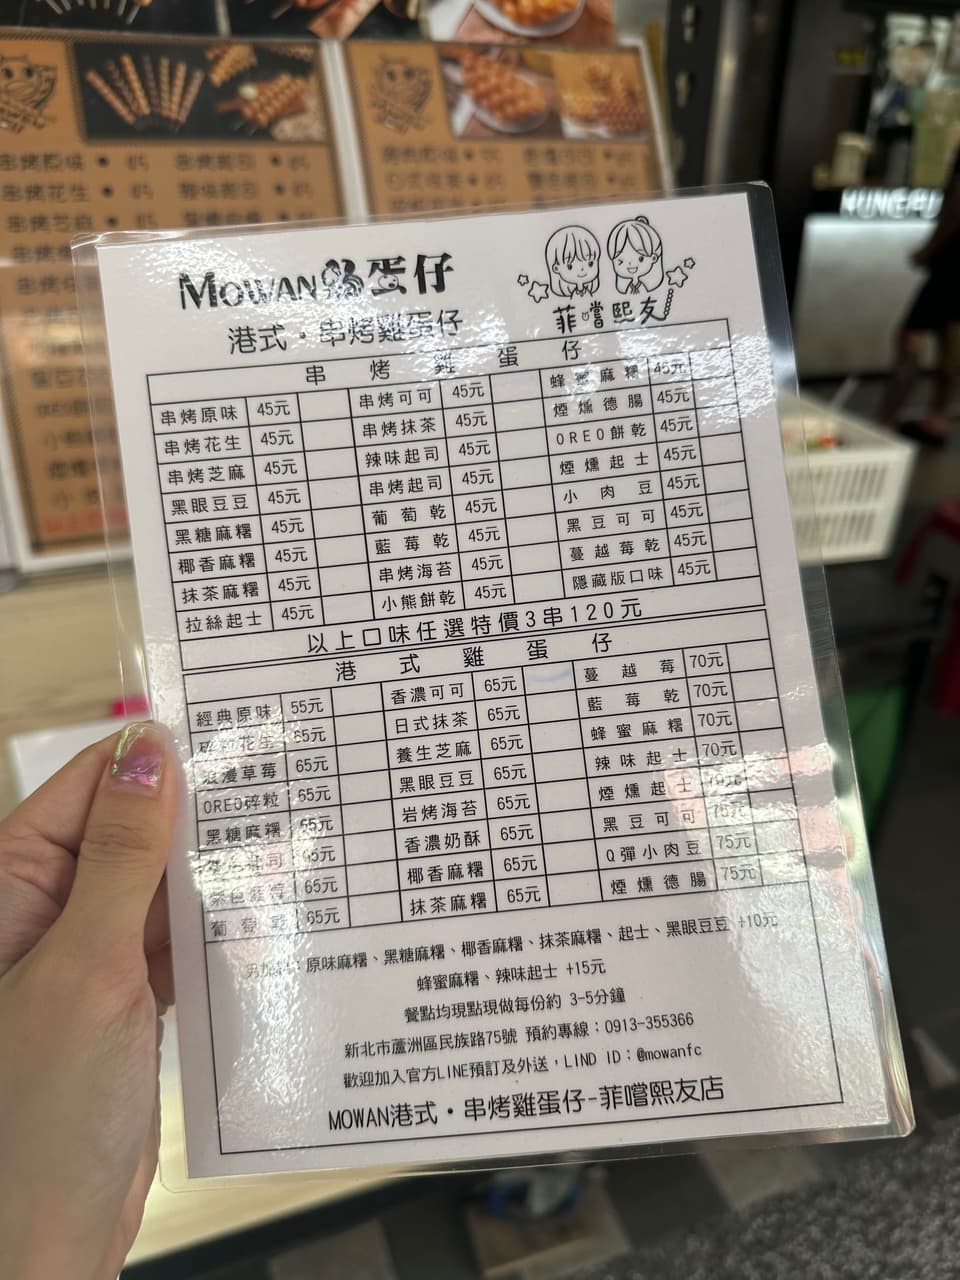 MOWAN雞蛋仔
菲嚐熙友
港式·串烤雞蛋仔
串烤雞蛋仔
串烤原味 45元 串烤可可 45元 蜂蜜麻糬 45元
串烤花生 45元 串烤抹茶 45元 煙燻德腸 45元
串烤芝麻 45元 辣味起司 45元 OREO餅乾 45元
黑眼豆豆 45元 串烤起司 45元 煙燻起士 45元
黑糖麻糬 45元 葡萄乾 45元 小肉豆 45元
椰香麻糬 45元 藍莓乾 45元 黑豆可可 45元
抹茶麻糬 45元 串烤海苔 45元 蔓越莓乾 45元
拉絲起士 45元 小熊餅乾 45元 隱藏版口味 45元
以上口味任選特價3串120元
港式雞蛋仔
經典原味 55元 香濃可可 65元 蔓越莓 70元
花生 65元 日式抹茶 65元 藍莓乾 70元
浪漫草莓 65元 養生芝麻 65元 蜂蜜麻糬 70元
OREO碎粒 65元 黑眼豆豆 65元 辣味起士 70元
黑糖麻糬 65元 岩烤海苔 65元 煙燻起士 70元
65元 香濃奶酥 65元 黑豆可可 75元
65元 椰香麻糬 65元 Q彈小肉豆 75元
葡萄乾 65元 抹茶麻糬 65元 煙燻德腸 75元
原味麻糬、黑糖麻糬、椰香麻糬、抹茶麻糬、起士、黑眼豆豆 +10元
蜂蜜麻糬、辣味起士 +15元
餐點均現點現做每份約 3-5分鐘
新北市蘆洲區民族路75號 預約專線：0913-355366
歡迎加入官方LINE預訂及外送，LIND ID：@mowanfc
MOWAN港式·串烤雞蛋仔-菲嚐熙友店